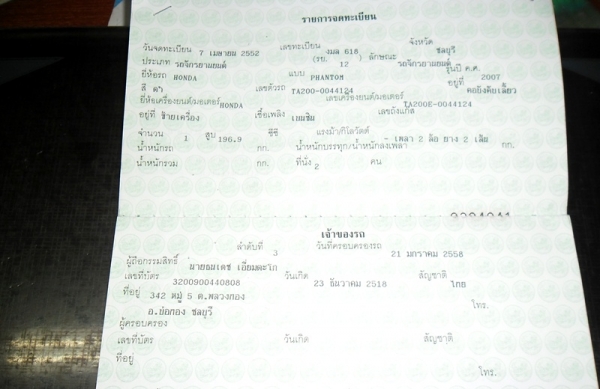 รายการจดทะเบียน
วันจดทะเบียน 7 เมษายน 2552 เลขทะเบียน งมล 618 จังหวัด ชลบุรี
ประเภท รถจักรยานยนต์ (รย. 12 ) ลักษณะ รถจักรยานยนต์
ยี่ห้อรถ HONDA แบบ PHANTOM รุ่นปี ค.ศ. 2007
สี ดำ เลขตัวรถ TA200-0044124 อยู่ที่ คอถังคิดเลี้ยว
ยี่ห้อเครื่องยนต์/มอเตอร์ HONDA เลขเครื่องยนต์/มอเตอร์ TA200E-0044124
อยู่ที่ ซ้ายเครื่อง เชื้อเพลิง เบนซิน เลขถังแก๊ส
จำนวน 1 สูบ 196.9 ซีซี แรงม้า/กิโลวัตต์ - เพลา 2 ล้อ ยาง 2 เส้น
น้ำหนักรถ กก. น้ำหนักบรรทุก/น้ำหนักลงเพลา กก.
น้ำหนักรวม กก. ที่นั่ง 2 คน
เจ้าของรถ
ลำดับที่ 3 วันที่ครอบครองรถ 21 มกราคม 2558
ผู้ถือกรรมสิทธิ์
เลขที่บัตร 3200900440808 วันเกิด 23 ธันวาคม 2518 สัญชาติ ไทย
ที่อยู่ 342 หมู่ 5 ต.พลวงทอง โทร.
อ.บ่อทอง ชลบุรี
ผู้ครอบครอง
เลขที่บัตร วันเกิด สัญชาติ
ที่อยู่ โทร.